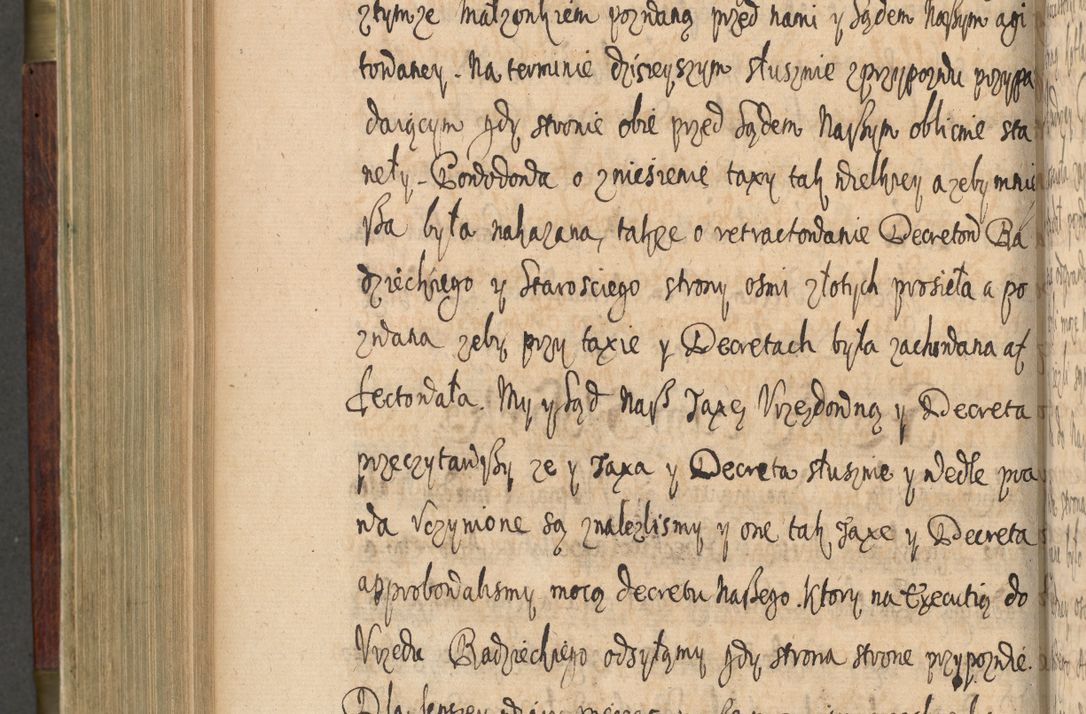 złymze Małzonkiem pozwaną przed nami y Sądem Naszym agi
towaney. Na terminie dzisieyszym słusznie z przypozwu przypa
daiącym gdy stronie obie przed Sądem Naszym oblicnie sta
neły. Powodowa o znieśienie taxy tak wielkiey a zeby mnie
ysza była nakazana, takze o retractowanie Decretow Ra
dzieckiego y Starosciego strony osmi złotych prosieła a po
zwana zeby przy taxie y Decretach była zachowana af
fectowała. My y Sąd Nasz Taxę Vrzędowną y Decreta
przeczytawszy ze y Taxa y Decreta słusznie y wedle pra
wa vczynione są znalezlismy y one tak Taxe y Decreta
approbowalismy mocą decretu Naszego. Ktory na Executią do
Vrzędu Radzieckiego odsyłamy gdy strona strone przypozwie.